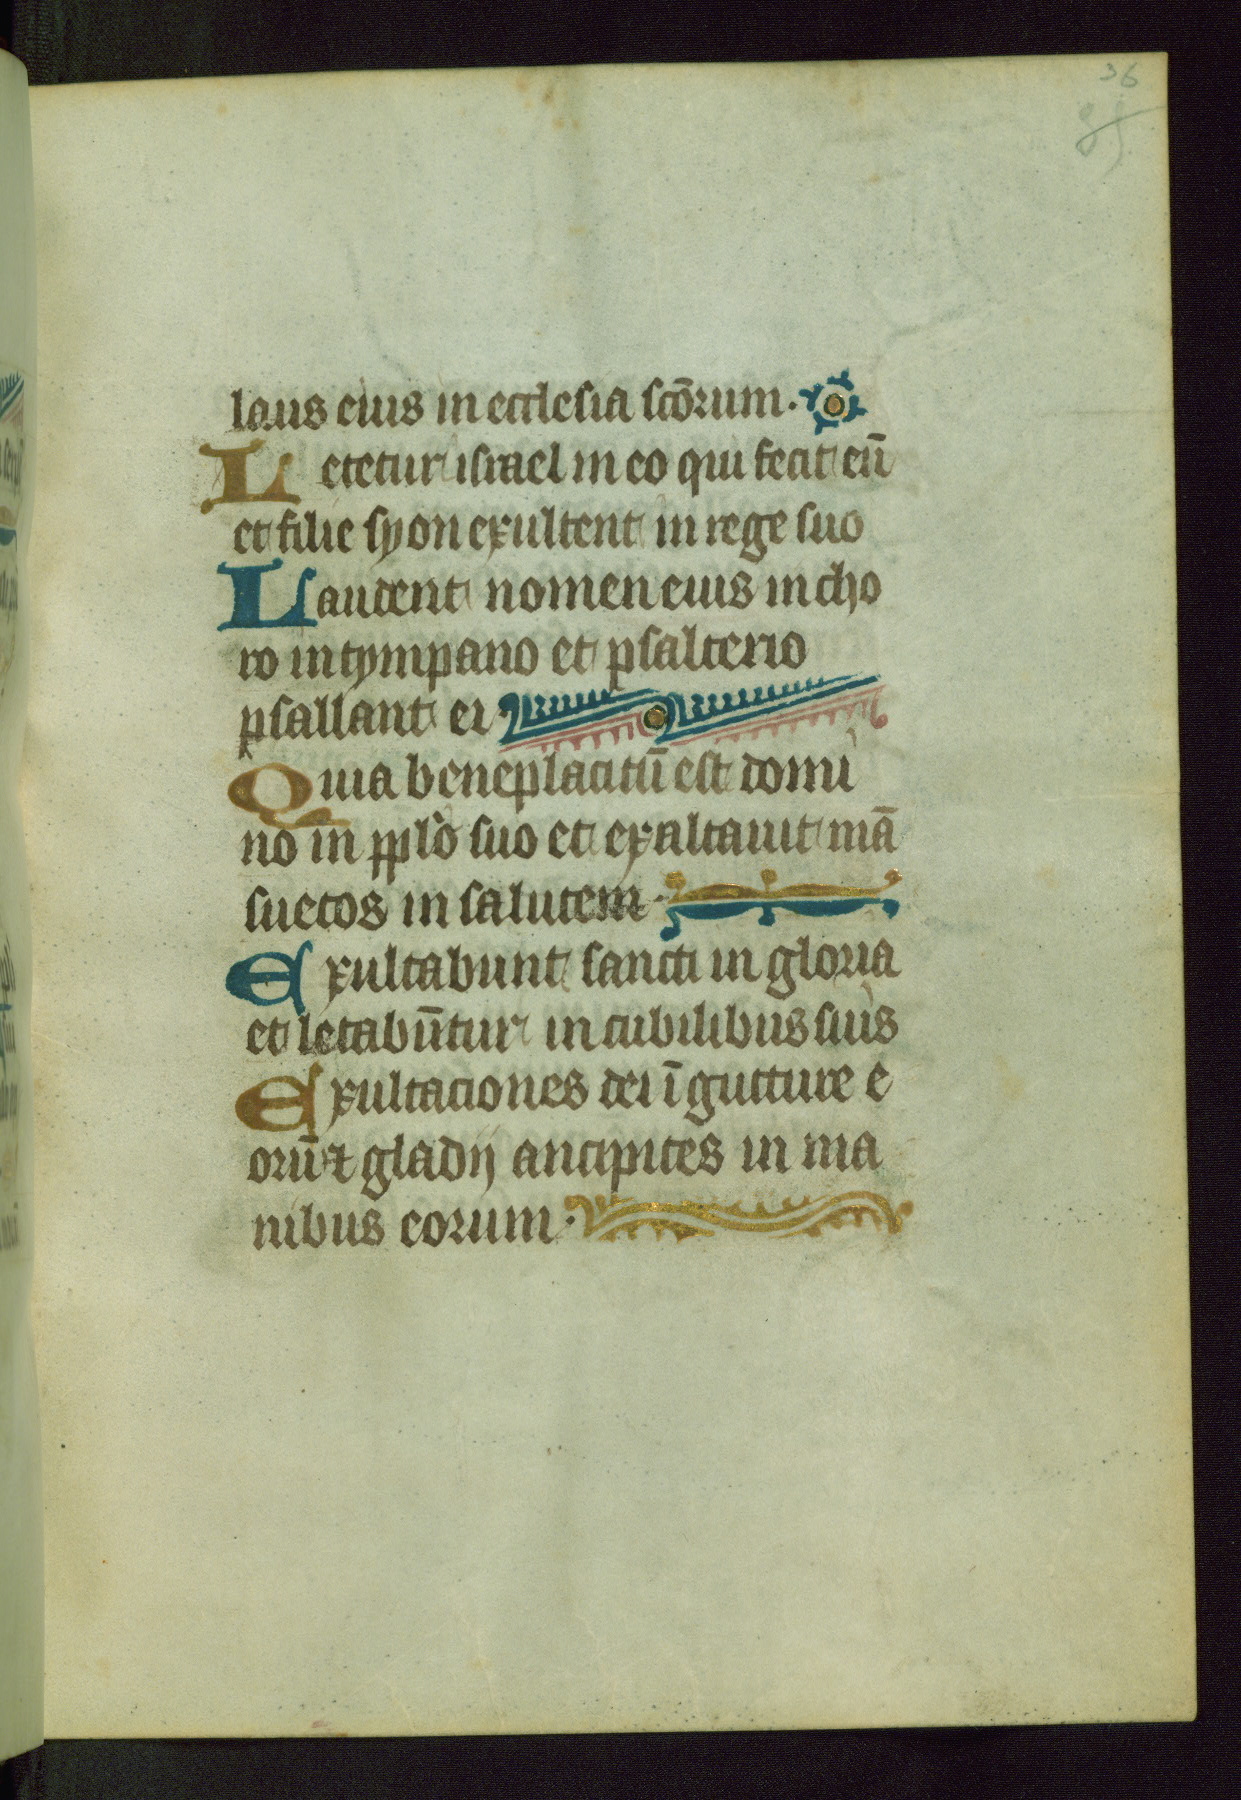 36
85
laus eius in ecclesia scōrum.
Letetur israel in eo qui fecit eū
et filie syon exultent in rege suo
Laudent nomen eius in cho
ro in tympano et psalterio
psallant ei
Quia beneplacitū est domi
no in pplo suo et exaltauit mā
suetos in salutem.
Exultabunt sancti in gloria
et letabūtur in cubilibus suis
Exultationes dei ī gutture e
orū ⁊ gladij ancipites in ma
nibus eorum.